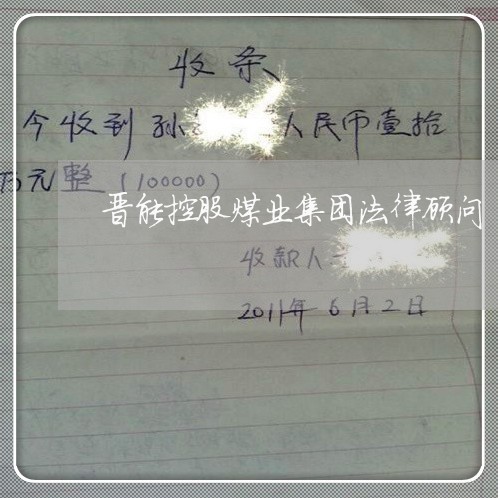 收条
今收到孙 人民币壹拾
万元整(100000)
晋能控股煤业集团法律顾问
收款人
2011年6月2日